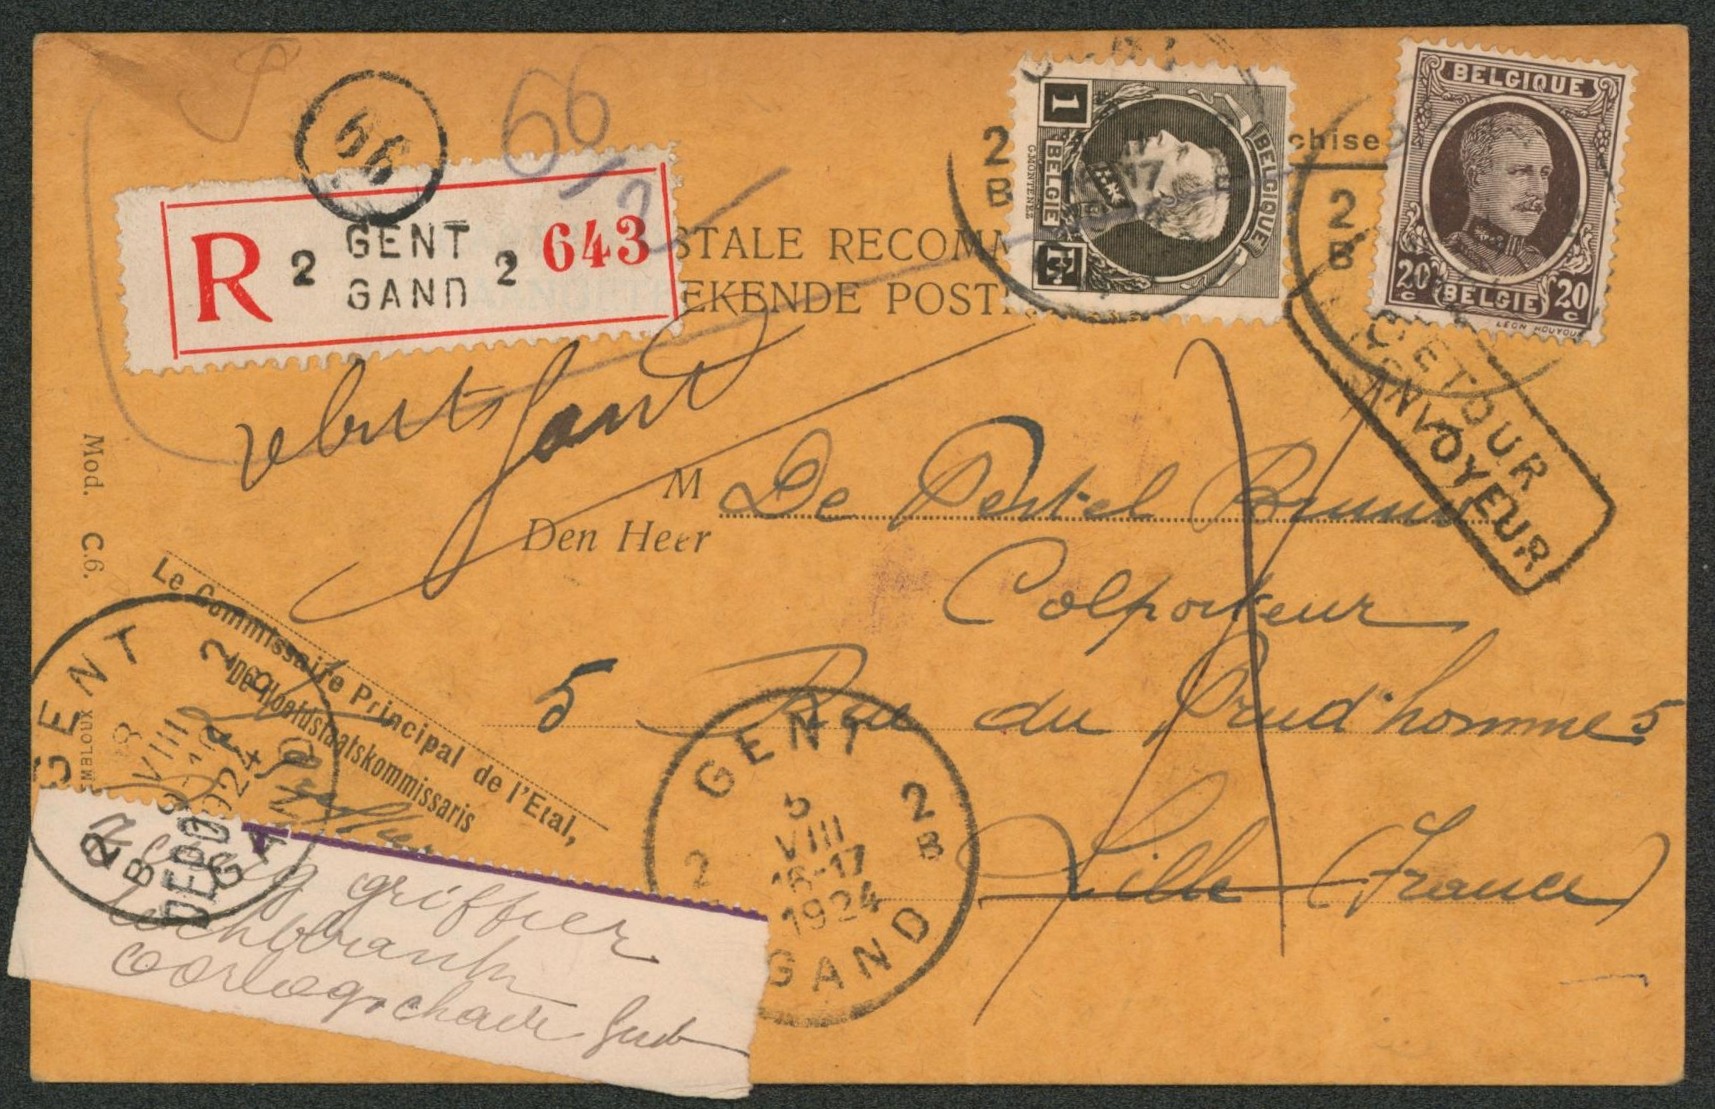 66
66/2
R 2 GENT GAND 2 643
1 BELGIQUE BELGIE Fr.
G. MONTENEZ
BELGIQUE
20 c BELGIE 20 c
LEON HOUYOUX
chise
2 B
2 B
STALE RECOMM
EKENDE POST
rebuts Gand
RETOUR
ENVOYEUR
M De Pestel Bruno
Den Heer
Colporteur
5 Rue du Prud'homme 5
Lille (France)
Mod. C.6.
MBLOUX
Le Commissaire Principal de l'Etat,
De Hoofdstaatskommissaris
GENT 2B
8 VIII 1924
2B GA
DEPO
GENT 2B
5 VIII
16-17
1924
2 GAND
griffier
rechtbank
oorlogschade Gent